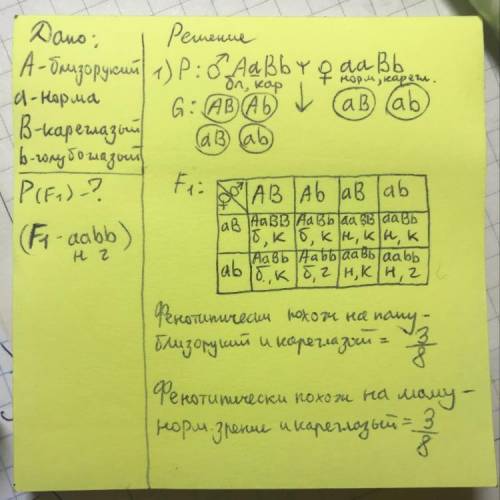 Дано:
А-близорукий
а-норма
В-кареглазый
b-голубоглазый
P(F1)-?
(F1-aabb)
н г
Решение
1) P: ♂ AaBb × ♀ aaBb
бл, кар норм, карегл.
G: AB Ab aB ab
aB ab
F1:
♀ ♂ AB Ab aB ab
aB AaBB AaBb aaBB aaBb
б, к б, к н, к н, к
ab AaBb Aabb aaBb aabb
б, к б, г н, к н, г
Фенотипически похож на папу-
близорукий и кареглазый = 3/8
Фенотипически похож на маму-
норм. зрение и кареглазый = 3/8